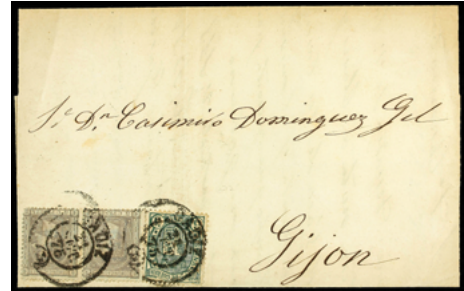 Sr. Dn. Casimiro Dominguez Gil
Gijon
CADIZ